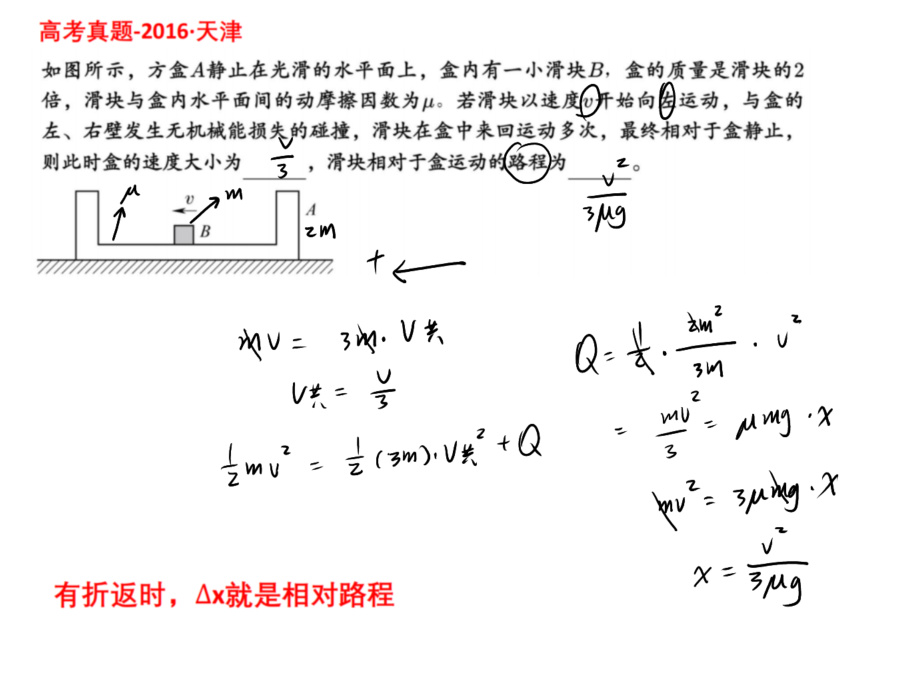 高考真题-2016·天津
如图所示，方盒A静止在光滑的水平面上，盒内有一小滑块B，盒的质量是滑块的2
倍，滑块与盒内水平面间的动摩擦因数为μ。若滑块以速度v开始向左运动，与盒的
左、右壁发生无机械能损失的碰撞，滑块在盒中来回运动多次，最终相对于盒静止，
则此时盒的速度大小为 v/3 ，滑块相对于盒运动的路程为 v²/3μg 。
μ v m A
B 2m
+
mv = 3m·V共
V共 = v/3
½mv² = ½(3m)·V共² + Q
Q = 1/2 · 2m²/3m · v²
= mv²/3 = μmg·x
mv² = 3μmg·x
x = v²/3μg
有折返时，Δx就是相对路程